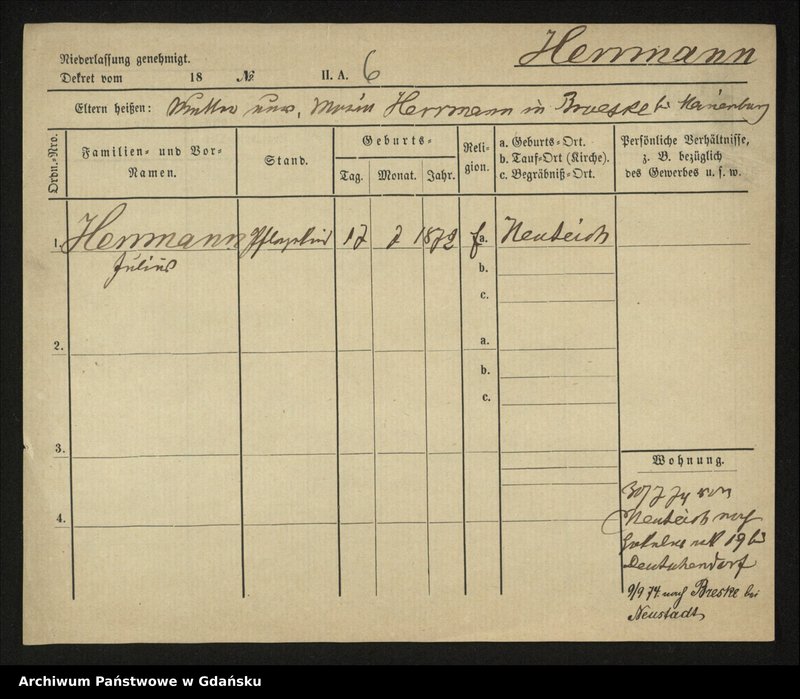 Herrmann
Niederlassung genehmigt.
Dekret vom 18 № II. A. 6
Eltern heißen: Mutter unv. Maria Herrmann in Broeske bei Marienburg
Ordn.-Nro.
Familien- und Vor-Namen.
Stand.
Geburts-
Tag. Monat. Jahr.
Religion.
a. Geburts-Ort.
b. Tauf-Ort (Kirche).
c. Begräbniß-Ort.
Persönliche Verhältnisse,
z. B. bezüglich
des Gewerbes u. s. w.
1. Herrmann Pflegekind 17 7 1872 a. Neuteich
Julius
b.
c.
2. a.
b.
c.
3.
4.
Wohnung.
30/7 74 von
Neuteich nach
19 bei
Deutschendorf
9/9 74 nach Breske bei
Neustadt